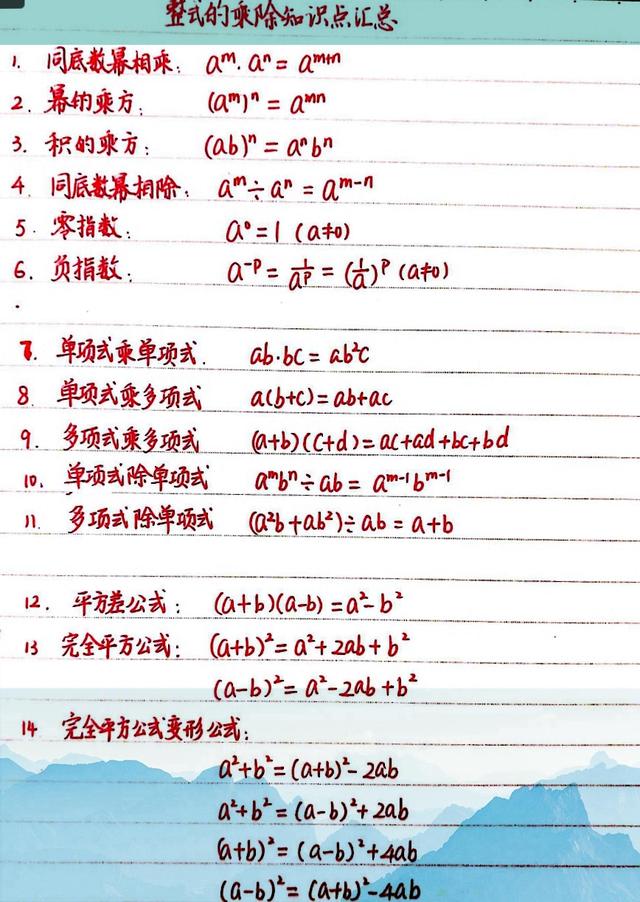 整式的乘除知识点汇总
1. 同底数幂相乘: aᵐ·aⁿ = aᵐ⁺ⁿ
2. 幂的乘方: (aᵐ)ⁿ = aᵐⁿ
3. 积的乘方: (ab)ⁿ = aⁿbⁿ
4. 同底数幂相除: aᵐ÷aⁿ = aᵐ⁻ⁿ
5. 零指数: a⁰ = 1 (a≠0)
6. 负指数: a⁻ᵖ = 1/aᵖ = (1/a)ᵖ (a≠0)
7. 单项式乘单项式. ab·bc = ab²c
8. 单项式乘多项式 a(b+c) = ab+ac
9. 多项式乘多项式 (a+b)(c+d) = ac+ad+bc+bd
10. 单项式除单项式 aᵐbⁿ÷ab = aᵐ⁻¹bᵐ⁻¹
11. 多项式除单项式 (a²b+ab²)÷ab = a+b
12. 平方差公式: (a+b)(a-b) = a²-b²
13 完全平方公式: (a+b)² = a²+2ab+b²
(a-b)² = a²-2ab+b²
14 完全平方公式变形公式:
a²+b² = (a+b)²-2ab
a²+b² = (a-b)²+2ab
(a+b)² = (a-b)²+4ab
(a-b)² = (a+b)²-4ab